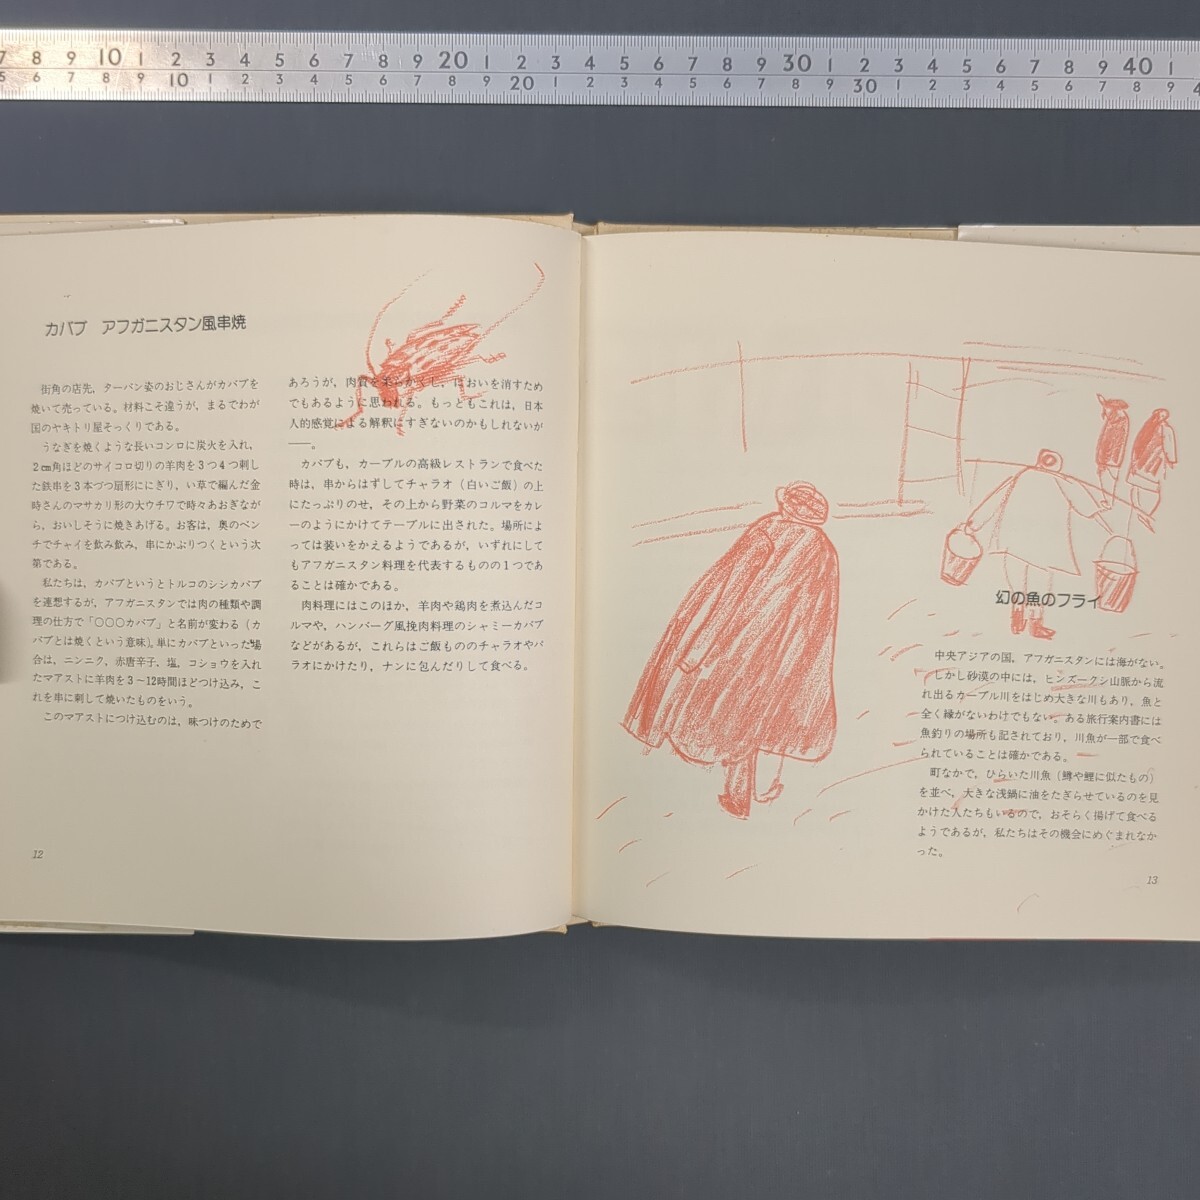 7 8 9 10 1 2 3 4 5 6 7 8 9 20 1 2 3 4 5 6 7 8 9 30 1 2 3 4 5 6 7 8 9 40 1
5 6 7 8 9 10 1 2 3 4 5 6 7 8 9 20 1 2 3 4 5 6 7 8 9 30 1 2 3 4 5 6 7 8 9 4
カバブ アフガニスタン風串焼
街角の店先，ターバン姿のおじさんがカバブを
焼いて売っている。材料こそ違うが，まるでわが
国のヤキトリ屋そっくりである。
うなぎを焼くような長いコンロに炭火を入れ，
2cm角ほどのサイコロ切りの羊肉を3つ4つ刺し
た鉄串を3本づつ扇形ににぎり，い草で編んだ金
時さんのマサカリ形の大ウチワで時々あおぎなが
ら，おいしそうに焼きあげる。お客は，奥のベン
チでチャイを飲み飲み，串にかぶりつくという次
第である。
私たちは，カバブというとトルコのシシカバブ
を連想するが，アフガニスタンでは肉の種類や調
理の仕方で「○○○カバブ」と名前が変わる（カ
バブとは焼くという意味）。単にカバブといった場
合は，ニンニク，赤唐辛子，塩，コショウを入れ
たマアストに羊肉を3〜12時間ほどつけ込み，こ
れを串に刺して焼いたものをいう。
このマアストにつけ込むのは，味つけのためで
あろうが，肉質を柔らかくし，においを消すため
でもあるように思われる。もっともこれは，日本
人的感覚による解釈にすぎないのかもしれないが
――。
カバブも，カーブルの高級レストランで食べた
時は，串からはずしてチャラオ（白いご飯）の上
にたっぷりのせ，その上から野菜のコルマをカレ
ーのようにかけてテーブルに出された。場所によ
っては装いをかえるようであるが，いずれにして
もアフガニスタン料理を代表するものの1つであ
ることは確かである。
肉料理にはこのほか，羊肉や鶏肉を煮込んだコ
ルマや，ハンバーグ風挽肉料理のシャミーカバブ
などがあるが，これらはご飯もののチャラオやパ
ラオにかけたり，ナンに包んだりして食べる。
12
幻の魚のフライ
中央アジアの国，アフガニスタンには海がない。
しかし砂漠の中には，ヒンズークシ山脈から流
れ出るカーブル川をはじめ大きな川もあり，魚と
全く縁がないわけでもない。ある旅行案内書には
魚釣りの場所も記されており，川魚が一部で食べ
られていることは確かである。
町なかで，ひらいた川魚（鱒や鯉に似たもの）
を並べ，大きな浅鍋に油をたぎらせているのを見
かけた人たちもいるので，おそらく揚げて食べる
ようであるが，私たちはその機会にめぐまれなか
った。
13